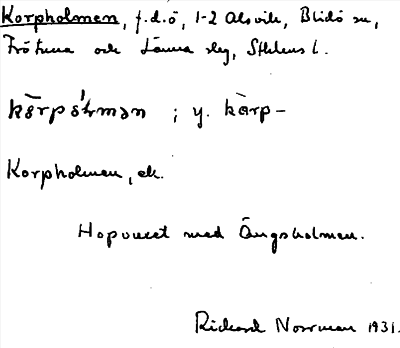 Korpholmen, f.d.ö, 1-2 Alsvik, Blidö sn,
Frötuna och Länna slg, Sthlms l.
kȯrpɷ̇mən ; y. kȯrp-
Korpholmen, ek.
Hopvuxet med Ängsholmen.
Rickard Norrman 1931.